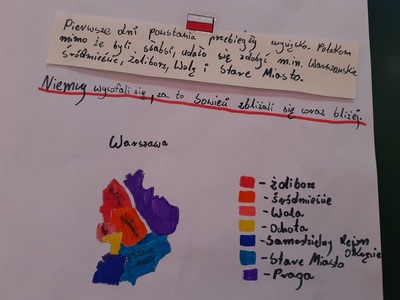 Pierwsze dni powstania przebiegły Polakom
mimo że byli słabsi, udało się zdobyć m.in. Warszawskie
Śródmieście, Żoliborz, Wolę i Stare Miasto.
Niemcy wycofali się, za to Sowieci zbliżali się coraz bliżej.
Warszawa
- Żoliborz
- Śródmieście
- Wola
- Ochota
- Samodzielny Rejon
Okęcie
- Stare Miasto
- Praga